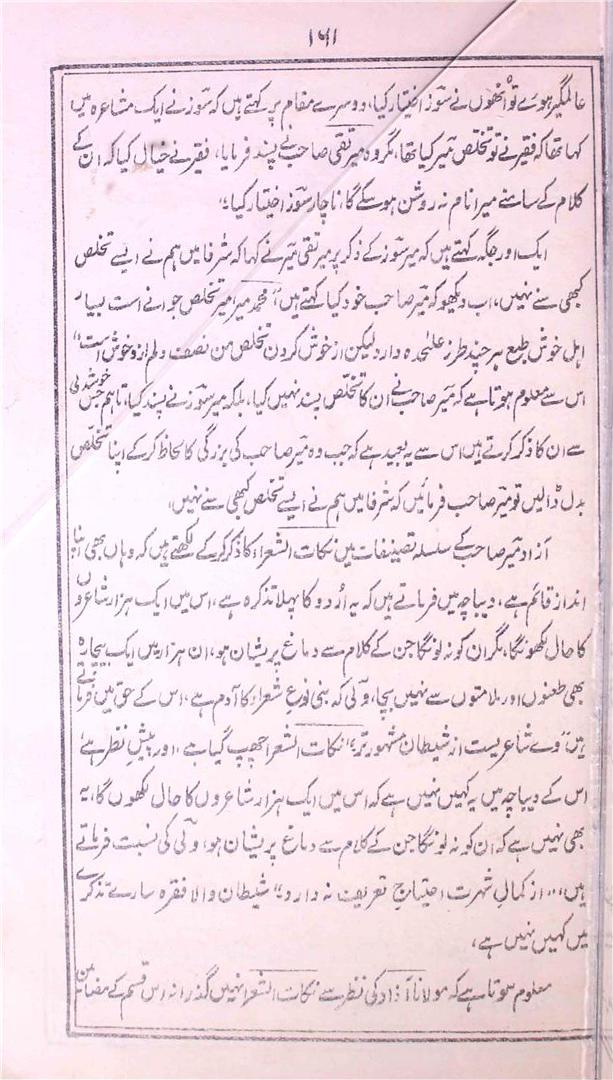 ۱۶۱
عالمگیر ہوئے تو انھوں نے سوزؔ اختیار کیا، دوسرے مقام پر کہتے ہیں کہ سوزؔ نے ایک مشاعرہ میں
کہا تھا کہ فقیر نے تو تخلص میرؔ کیا تھا، مگر وہ میر تقی صاحب نے پسند فرمایا، فقیر نے خیال کیا کہ ان کے
کلام کے سامنے میرا نام نہ روشن ہو سکے گا، ناچار سوزؔ اختیار کیا،"
ایک اور جگہ کہتے ہیں کہ میر سوزؔ کے ذکر پر میر تقی میرؔ نے کہا کہ شرفا میں ہم نے ایسے تخلص
کبھی سنے نہیں، اب دیکھو کہ میرؔ صاحب خود کیا کہتے ہیں "محمد میر، میرؔ تخلص جوانے است بسیار
اہل خوش طبع ہر چند طرز علٰحدہ دارد لیکن از خوش کردن تخلص من نصف دلم ازو خوش است"
اس سے معلوم ہوتا ہے کہ میرؔ صاحب نے ان کا تخلص پسند نہیں کیا، بلکہ میر سوزؔ نے پسند کیا، تاہم جس خوشدلی
سے ان کا ذکر کرتے ہیں اس سے یہ بعید ہے کہ جب وہ میرؔ صاحب کی بزرگی کا لحاظ کر کے اپنا تخلص
بدل ڈالیں تو میرؔ صاحب فرمائیں کہ شرفا میں ہم نے ایسے تخلص کبھی سنے نہیں،
آزاد میرؔ صاحب کے سلسلہ تصنیفات میں نکات الشعراء کا ذکر کر کے لکھتے ہیں کہ وہاں بھی اپنا
انداز قائم ہے، دیباچہ میں فرماتے ہیں کہ یہ اُردو کا پہلا تذکرہ ہے، اس میں ایک ہزار شاعروں
کا حال لکھونگا، مگر ان کو نہ لونگا جن کے کلام سے دماغ پریشان ہو، ان ہزار میں ایک بیچارہ
بھی طعنوں اور ملامتوں سے نہیں بچا، ولیؔ کہ بنی نوع شعراء کا آدم ہے، اس کے حق میں فرماتے
ہیں "وے شاعریست از شیطان مشہور تر" نکات الشعرا چھپ گیا ہے، اور پیش نظر ہے
اس کے دیباچہ میں یہ کہیں نہیں ہے کہ اس میں ایک ہزار شاعروں کا حال لکھوں گا، یہ
بھی نہیں ہے کہ ان کو نہ لونگا جن کے کلام سے دماغ پریشان ہو، ولیؔ کی نسبت فرماتے
ہیں "از کمالِ شہرت احتیاجِ تعریف نہ دارد" شیطان والا فقرہ سارے تذکرے
میں کہیں نہیں ہے،
معلوم ہوتا ہے کہ مولانا آزاد کی نظر سے نکات الشعراء نہیں گذرا نہ اس قسم کے مضامین